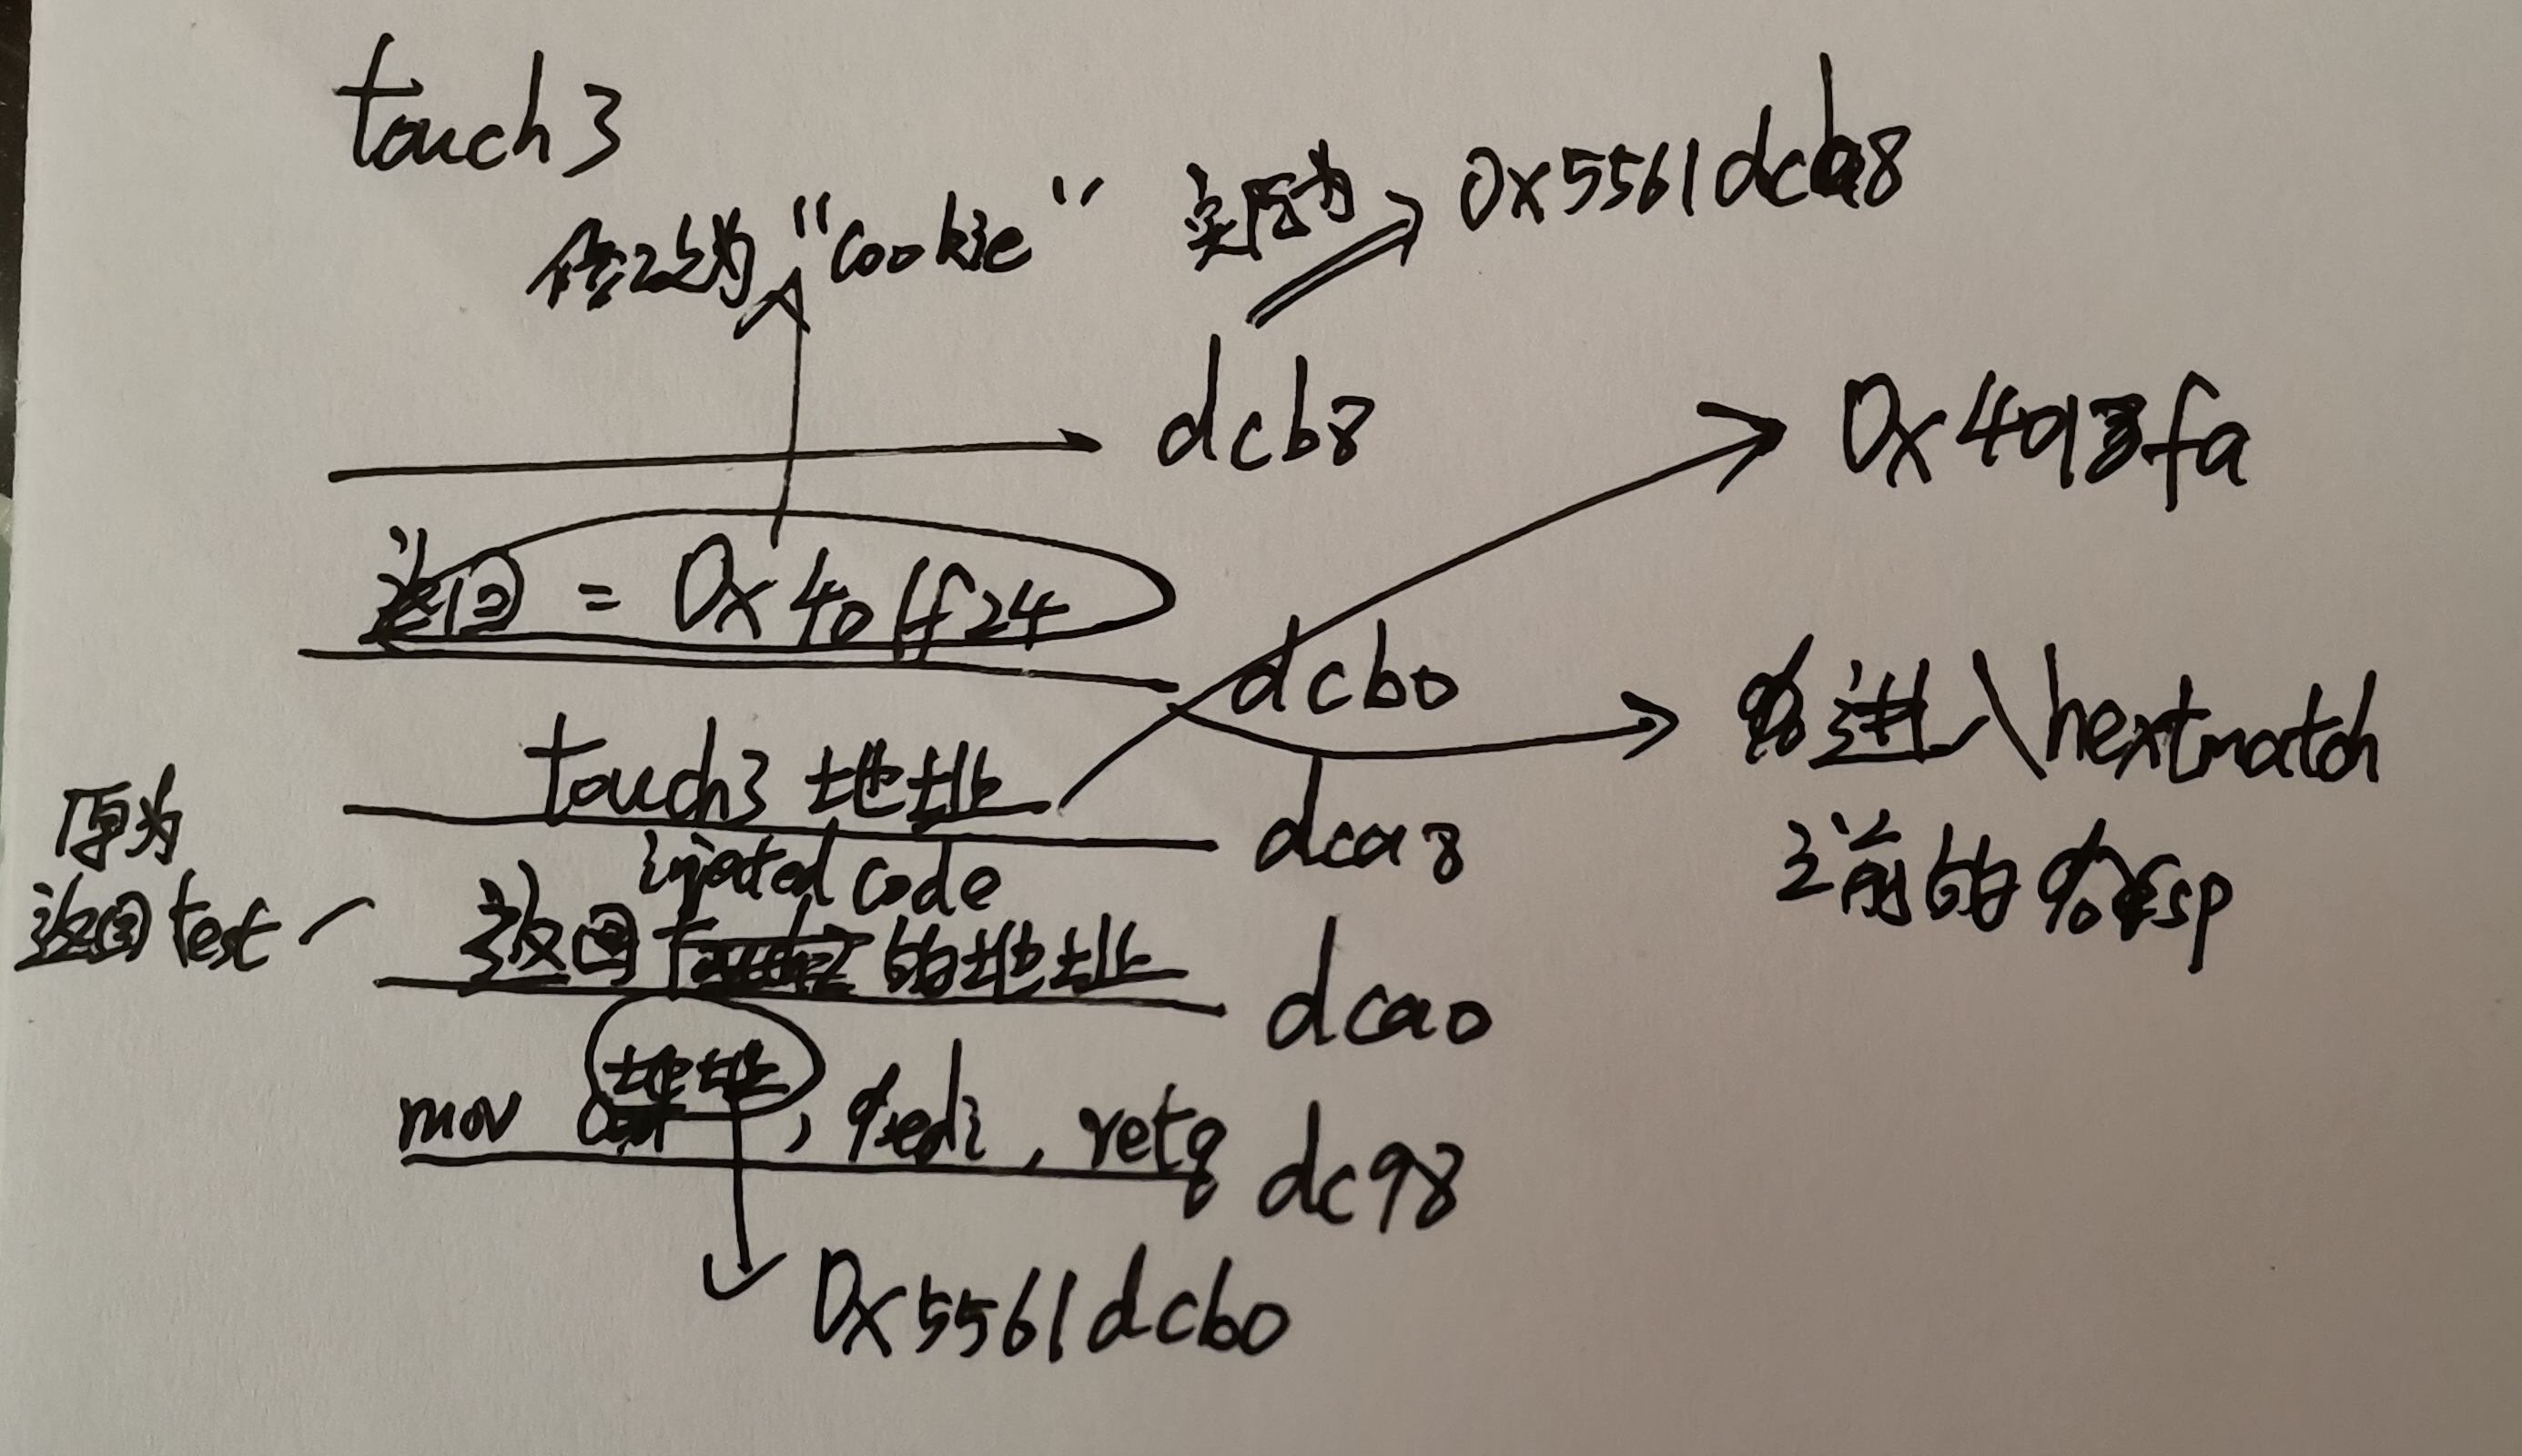 touch3
修改为 "cookie" 实际为 0x5561dcb8
dcb8
0x4018fa
返回 = 0x401f24
dcb0
进入hexmatch
之前的%rsp
touch3 地址
dca8
原为
返回test
injected code
返回 的地址
dca0
地址
mov , %edi, retq
dc98
0x5561dcb0